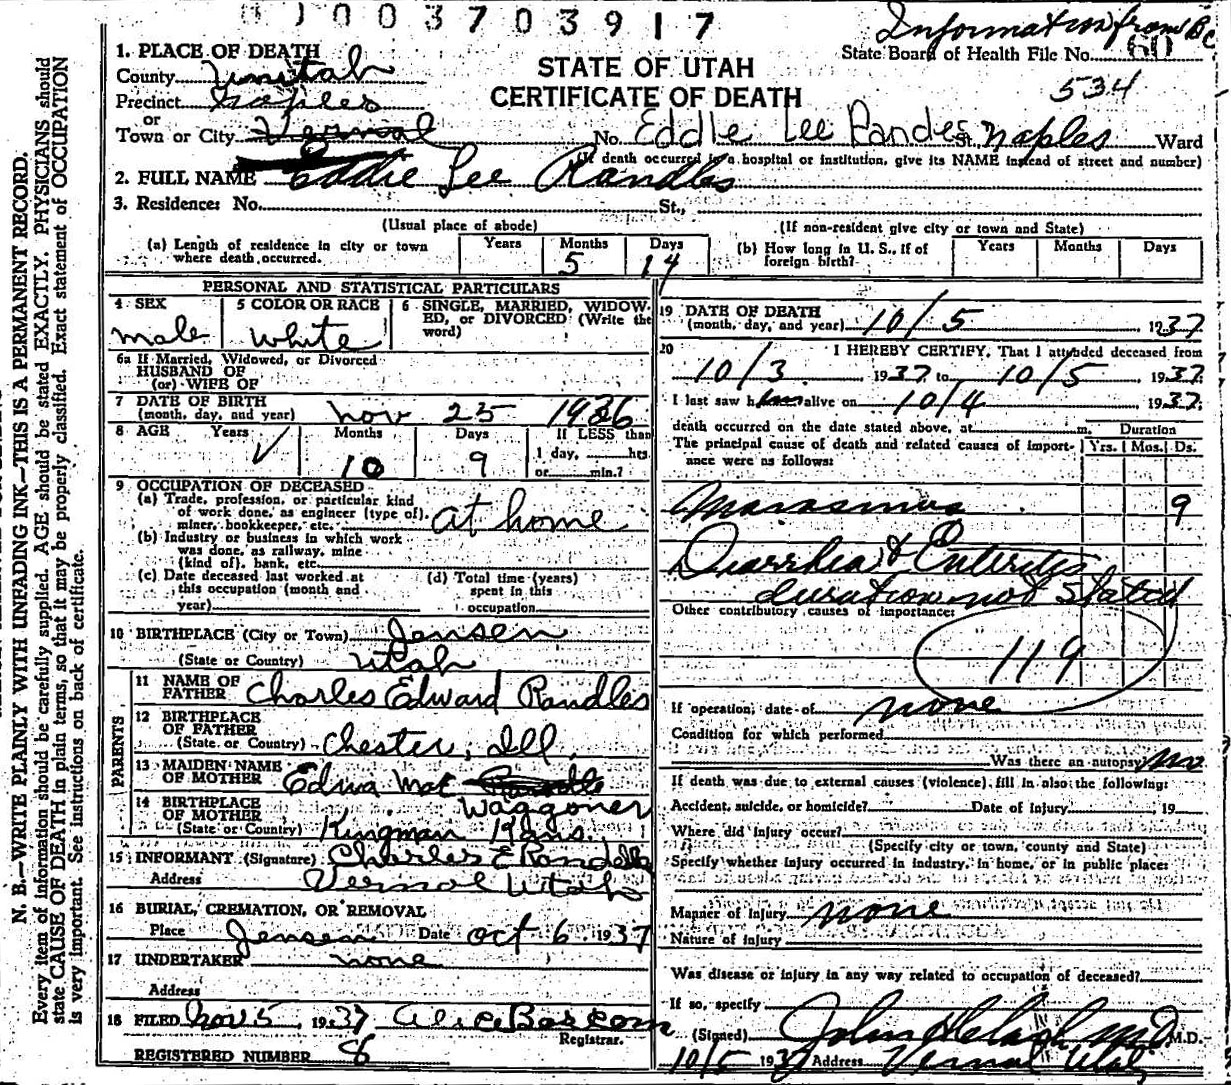 0 1 0 0 3 7 0 3 9 1 7
Information from Bc
State Board of Health File No. 60
534
STATE OF UTAH
CERTIFICATE OF DEATH
1. PLACE OF DEATH
County Uintah
Precinct Naples
or
Town or City Vernal No. Eddie Lee Randles St. Naples Ward
(If death occurred in a hospital or institution, give its NAME instead of street and number)
2. FULL NAME Eddie Lee Randles
3. Residence: No. St.,
(Usual place of abode) (If non-resident give city or town and State)
(a) Length of residence in city or town where death occurred. Years Months 5 Days 14
(b) How long in U. S., if of foreign birth? Years Months Days
PERSONAL AND STATISTICAL PARTICULARS
4 SEX male
5 COLOR OR RACE White
6 SINGLE, MARRIED, WIDOWED, or DIVORCED (Write the word)
6a If Married, Widowed, or Divorced
HUSBAND OF
(or) WIFE OF
7 DATE OF BIRTH
(month, day, and year) Nov 25 1936
8 AGE Years ✓ Months 10 Days 9 If LESS than
1 day, hrs
or min.?
9 OCCUPATION OF DECEASED
(a) Trade, profession, or particular kind
of work done, as engineer (type of),
miner, bookkeeper, etc. at home
(b) Industry or business in which work
was done, as railway, mine
(kind of), bank, etc.
(c) Date deceased last worked at
this occupation (month and
year)
(d) Total time (years)
spent in this
occupation
10 BIRTHPLACE (City or Town) Jensen
(State or Country) Utah
PARENTS
11 NAME OF FATHER Charles Edward Randles
12 BIRTHPLACE OF FATHER
(State or Country) Chester, Ill.
13 MAIDEN NAME OF MOTHER Edna Mae Waggoner
14 BIRTHPLACE OF MOTHER
(State or Country) Kingman Kans.
15 INFORMANT (Signature) Charles E Randells
Address Vernal Utah
16 BURIAL, CREMATION, OR REMOVAL
Place Jensen Date Oct 6 1937
17 UNDERTAKER none
Address
18 FILED Nov 5, 1937 Alice Bascom
Registrar.
REGISTERED NUMBER 8
19 DATE OF DEATH
(month, day, and year) 10/5, 1937
20 I HEREBY CERTIFY, That I attended deceased from
10/3 1937 to 10/5, 1937
I last saw him alive on 10/4 1937
death occurred on the date stated above, at m. Duration
The principal cause of death and related causes of importance were as follows: Yrs. Mos. Ds.
Marasmus 9
Diarrhea & Enteritis
duration not stated
Other contributory causes of importance:
119
If operation, date of none
Condition for which performed
Was there an autopsy no
If death was due to external causes (violence), fill in also the following:
Accident, suicide, or homicide? Date of injury, 19
Where did injury occur?
(Specify city or town, county and State)
Specify whether injury occurred in industry, in home, or in public place:
Manner of injury none
Nature of injury
Was disease or injury in any way related to occupation of deceased?
If so, specify
(Signed) John M.D. M.D.
10/5 1937 Address Vernal Utah
N. B.—WRITE PLAINLY WITH UNFADING INK—THIS IS A PERMANENT RECORD.
Every item of information should be carefully supplied. AGE should be stated EXACTLY. PHYSICIANS should
state CAUSE OF DEATH in plain terms, so that it may be properly classified. Exact statement of OCCUPATION
is very important. See instructions on back of certificate.